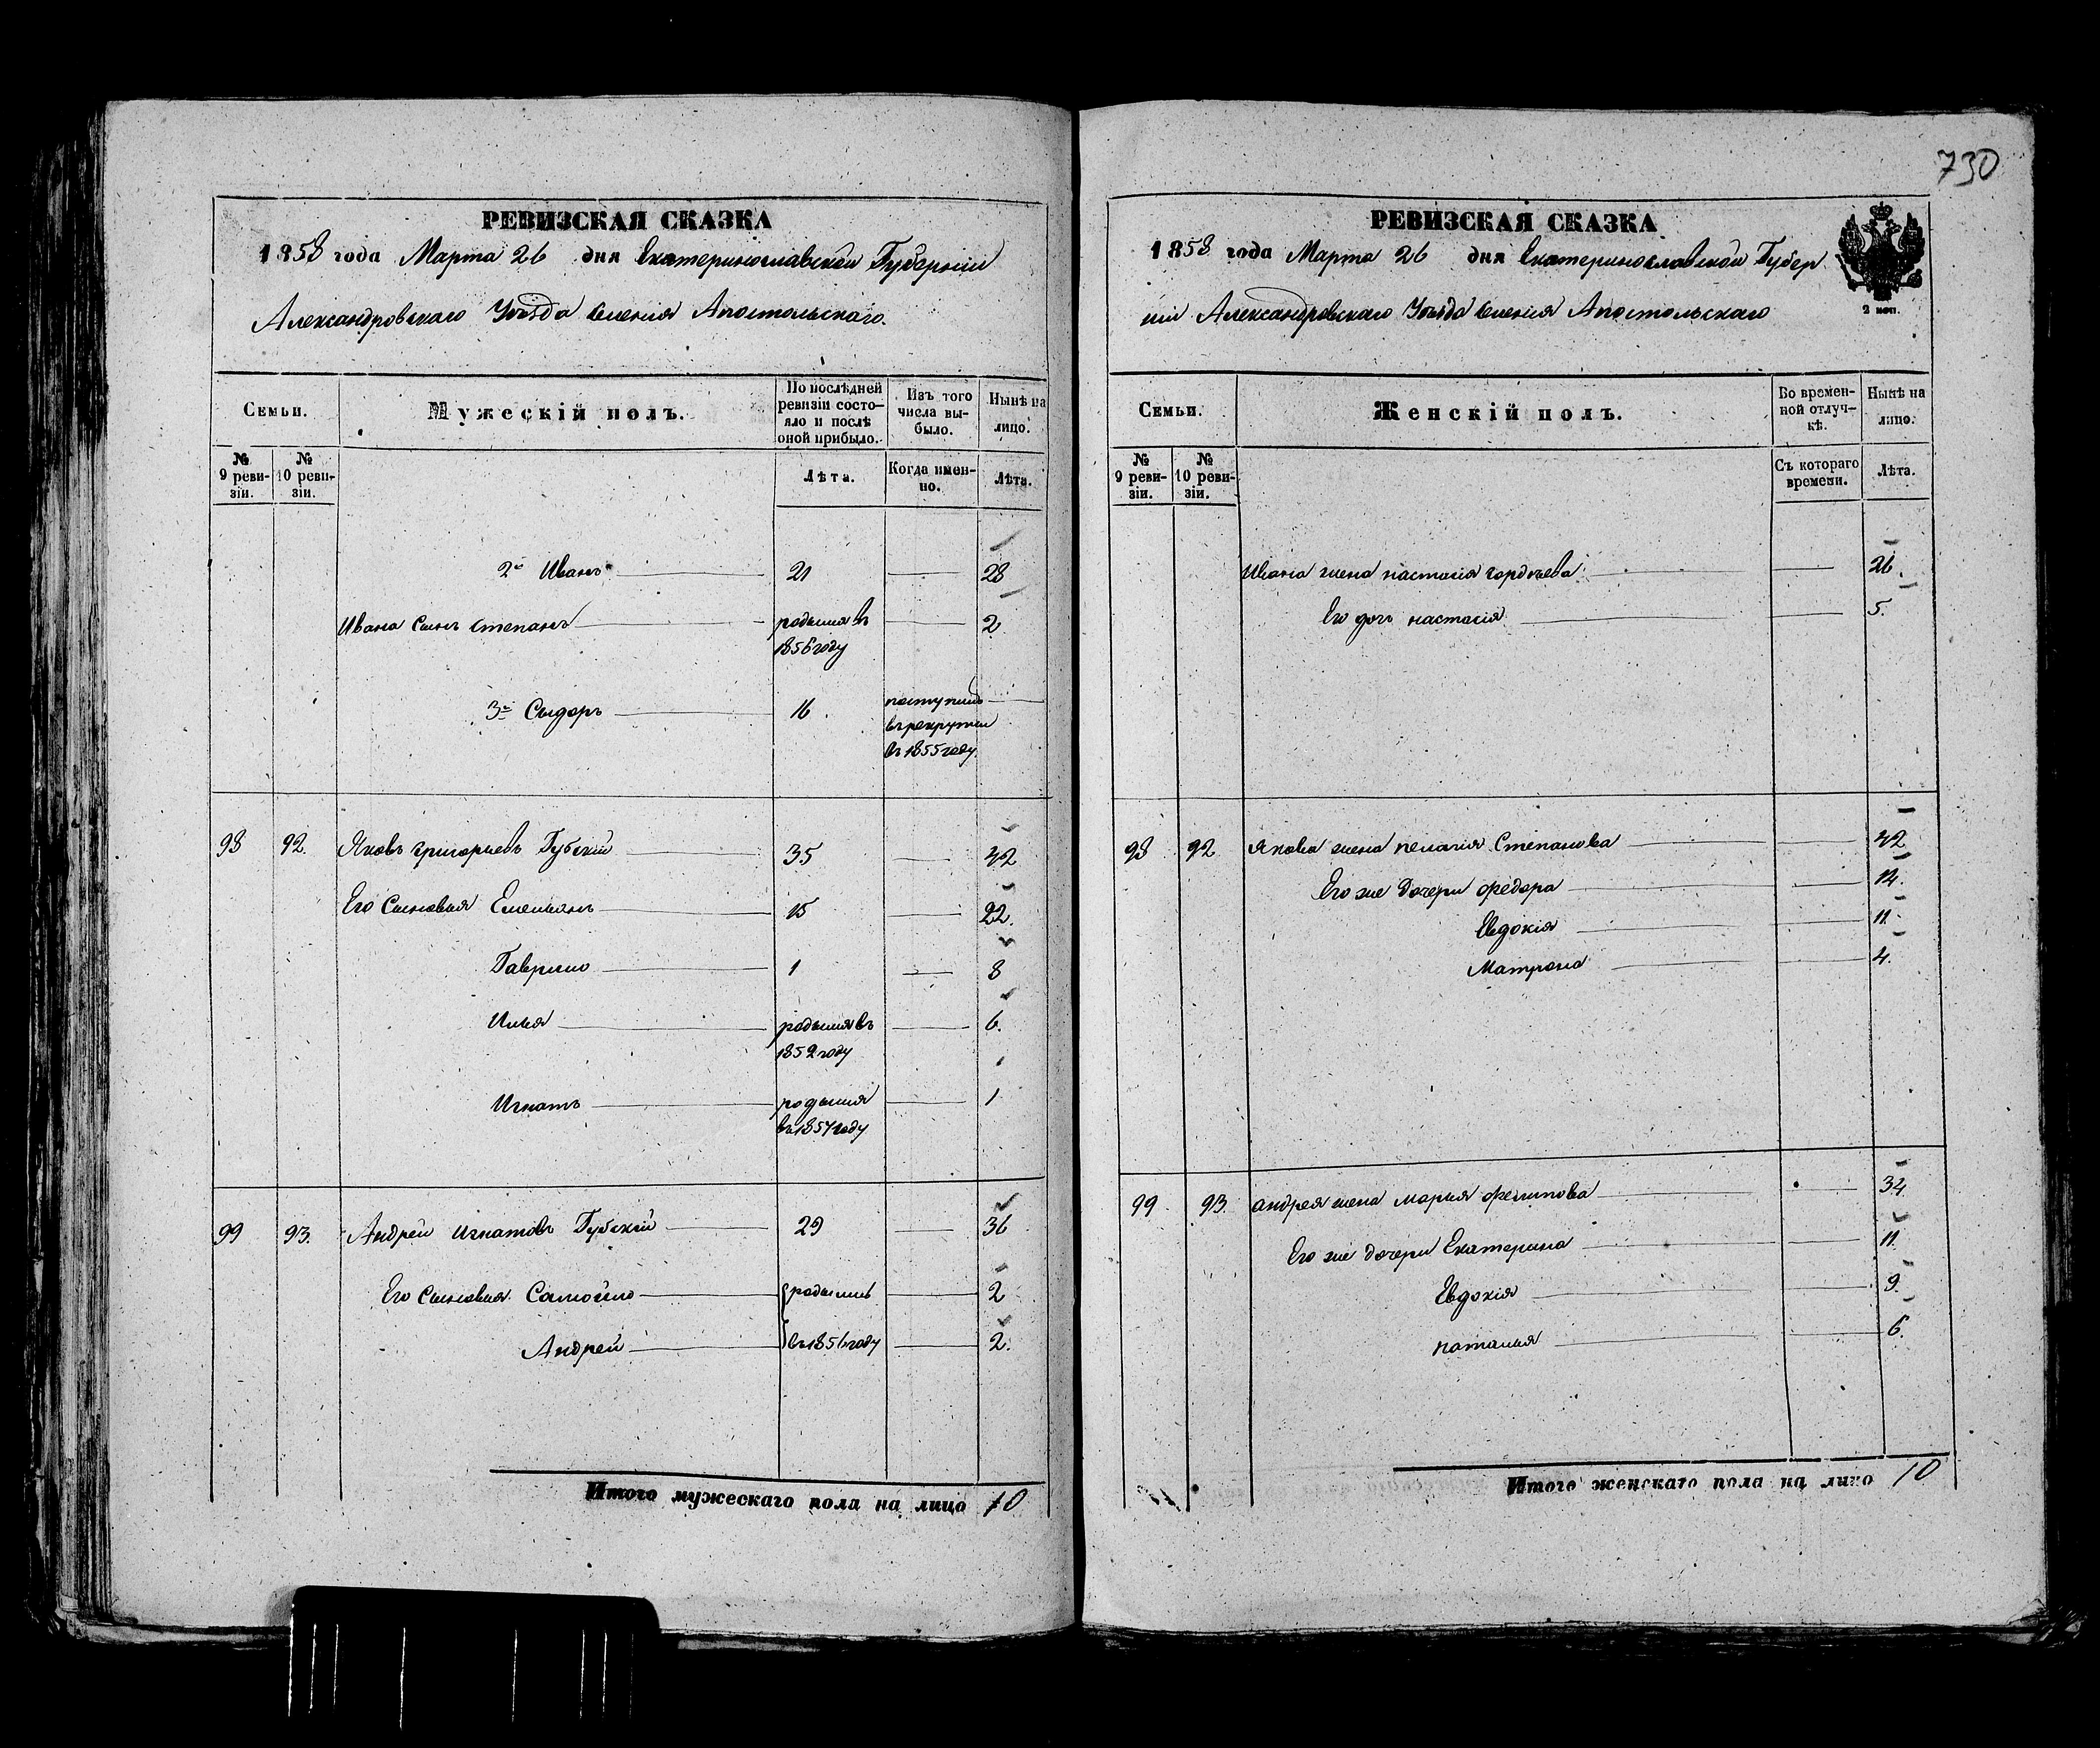 730
РЕВИЗСКАЯ СКАЗКА
1858 года Марта 26 дня Екатеринославской Губерніи
Александровскаго Уѣзда Селенія Апостольскаго.
Семьи.
Мужескій полъ.
По послѣдней ревизіи состо-
яло и послѣ оной прибыло.
Изъ того числа вы-
было.
Нынѣ на лицо.
№ 9 реви-
зіи.
№ 10 реви-
зіи.
Лѣта.
Когда имен-
но.
Лѣта.
2й Иванъ 21 28
Ивана Сынъ Степанъ родился въ 2
1856 году
3й Сыдоръ 16 поступилъ
въ рекруты
въ 1855 году
98 92. Яковъ Григорьевъ Губскій 35 42
Его Сыновья Емельянъ 15 22.
Гаврило 1 8
Илья родился въ 6.
1852 году
Игнатъ родился 1
въ 1857 году
99 93. Андрей Игнатовъ Губскій 29 36
Его Сыновья Самойло родились 2
Андрей въ 1856 году 2.
Итого мужескаго пола на лицо 10
РЕВИЗСКАЯ СКАЗКА
1858 года Марта 26 дня Екатеринославской Губер
ніи Александровскаго Уѣзда Селенія Апостольскаго
2 коп.
Семьи.
Женскій полъ.
Во времен-
ной отлуч-
кѣ.
Нынѣ на лицо.
№ 9 реви-
зіи.
№ 10 реви-
зіи.
Съ котораго
времени.
Лѣта.
Ивана жена настасія гордѣева 26.
Его дочь настасія 5.
98 92 Якова жена пелагія Степанова 42
Его же Дочери федора 14.
Евдокія 11.
Матрона 4.
99 93. андрея жена марья филипова 34
Его же дочери Екатерина 11.
Евдокія 9.
наталья 6.
Итого женскаго пола на лицо 10